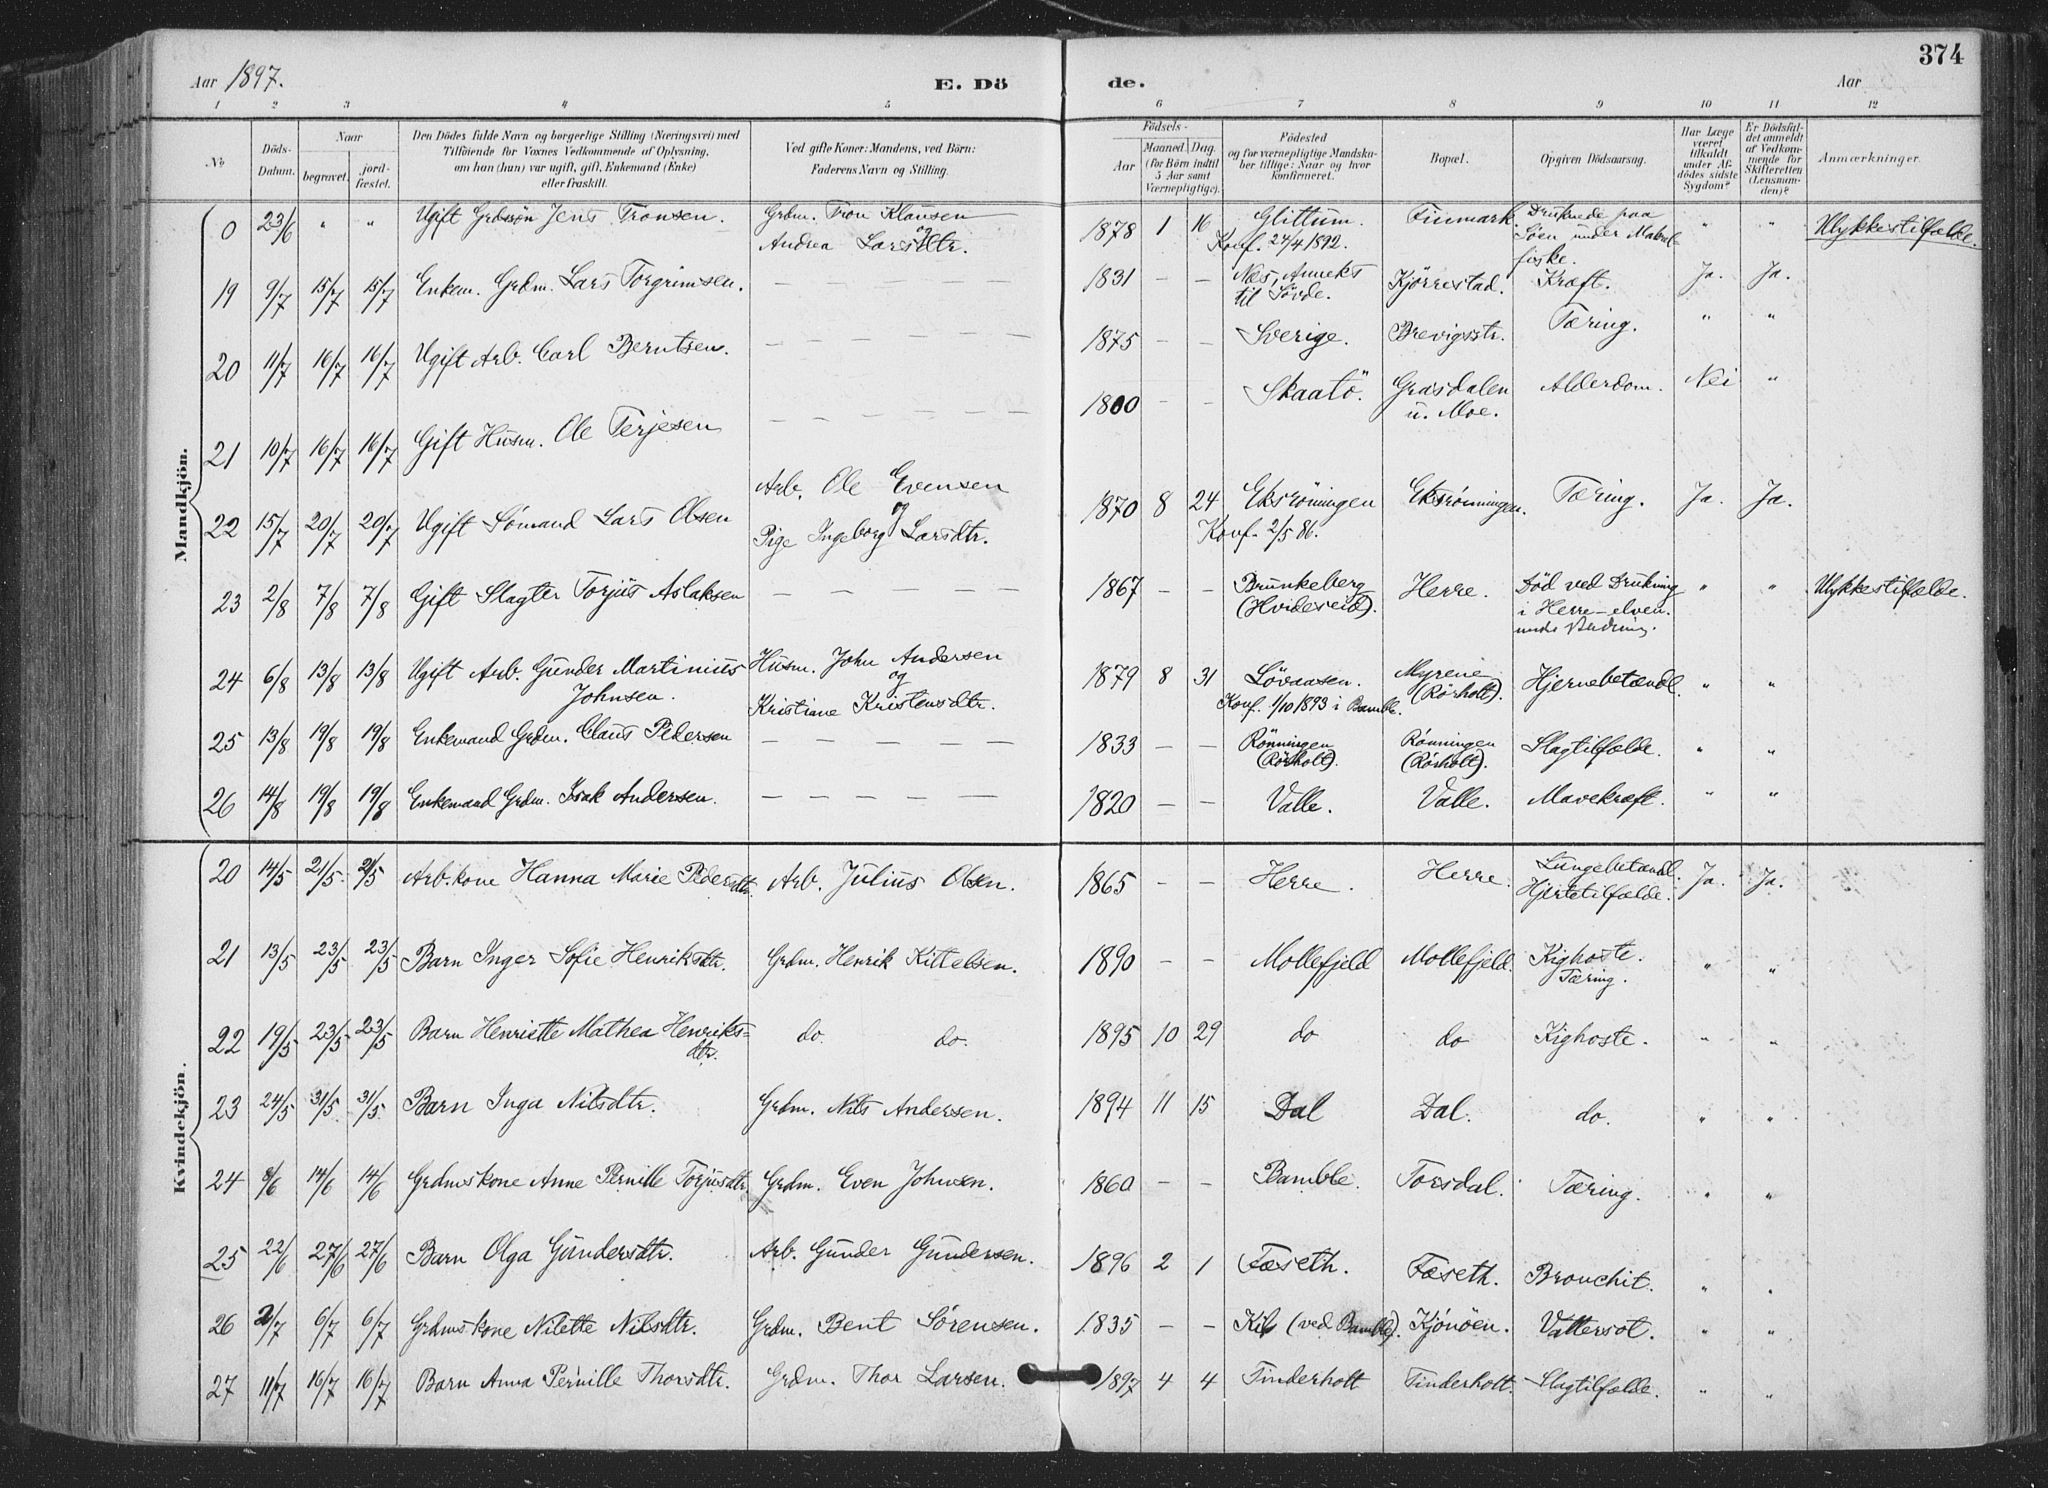 374
Aar 1897. E. Dö de. Aar
1 2 3 4 5 6 7 8 9 10 11 12
No
Döds-Datum.
Naar
begravet.
jord-fæstet.
Den Dödes fulde Navn og borgerlige Stilling (Næringsvei) med
Tilföiende for Voxnes Vedkommende af Oplysning,
om han (hun) var ugift, gift, Enkemand (Enke)
eller fraskilt.
Ved gifte Koner: Mandens, ved Börn:
Faderens Navn og Stilling.
Födsels-
Aar
Maaned. Dag.
(for Börn indtil
5 Aar samt
Værnepligtige).
Födested
og for værnepligtige Mandska-
ber tillige: Naar og hvor
konfirmeret.
Bopæl.
Opgiven Dödsaarsag.
Har Læge
været
tilkaldt
under Af-
dödes sidste
Sygdom?
Er Dödsfal-
det anmeldt
af Vedkom-
mende for
Skifteretten
(Lensman-
den)?
Anmærkninger.
Mandkjön.
0 23/6 " " Ugift Grdssön Jens Tronsen. Grdm. Tron Klausen og Andrea Larsdtr. 1878 1 16 Glittum. Konf. 24/4 1892. Finmark. Druknede paa Söen under Makrelfiske. " " Ulykkestilfælde.
19 9/7 15/7 15/7 Enkem. Grdm. Lars Torgrimsen. — — — — — 1831 — — Næs, Anneks til Sövde. Kjörrestad. Kræft. Ja. Ja.
20 11/7 16/7 16/7 Ugift Arb. Carl Berntsen. — — — — — 1875 — — Sverige. Brevigsstr. Tæring. " "
21 10/7 16/7 16/7 Gift Husm. Ole Terjesen — — — — — 1800 — — Skaatö. Grasdalen u. Moe. Alderdom. Nei "
22 15/7 20/7 20/7 Ugift Sömand Lars Olsen Arb. Ole Evensen og Pige Ingeborg Larsdtr. 1870 8 24 Eksröningen Konf. 2/5 86. Eksrønningen. Tæring. Ja. Ja.
23 2/8 7/8 7/8 Gift Slagter Torjus Aslaksen — — — — — 1867 — — Brunkeberg (Hvideseid). Herre. Död ved Drukning i Herre-elven under Badning. " " Ulykkestilfælde.
24 6/8 13/8 13/8 Ugift Arb. Gunder Martinius Johnsen. Husm. John Andersen og Kristiane Kristensdtr. 1879 8 31 Lövaasen. Konf. 1/10 1893 i Bamble. Myrene (Rørholt). Hjernebetændl. " "
25 13/8 19/8 19/8 Enkemand Grdm. Claus Pedersen — — — — — 1833 — — Rönningen (Rörholt). Rønningen (Rørholt). Slagtilfælde. " "
26 14/8 19/8 19/8 Enkemand Grdm. Isak Andersen. — — — — — 1820 — — Valle. Valle. Mavekræft. " "
Kvindekjön.
20 14/5 21/5 21/5 Arb.kone Hanna Marie Pedersdtr. Arb. Julius Olsen. 1865 — — Herre. Herre. Lungebetændl. Hjertetilfælde. Ja. Ja.
21 13/5 23/5 23/5 Barn Inger Sofie Henriksdtr. Grdm. Henrik Kittelsen. 1890 — — Mollefjeld Mollefjeld. Kighoste. Tæring. " "
22 19/5 23/5 23/5 Barn Henriette Mathea Henriks=dtr. do. do. 1895 10 29 do do Kighoste. " "
23 24/5 31/5 31/5 Barn Inga Nilsdtr. Grdm. Nils Andersen. 1894 11 15 Dal Dal. do. " "
24 8/6 14/6 14/6 Grdmskone Anne Pernille Torjusdtr. Grdm. Even Johnsen. 1860 — — Bamble. Torsdal. Tæring. " "
25 22/6 27/6 27/6 Barn Olga Gundersdtr. Arb. Gunder Gundersen. 1896 2 1 Fæseth. Fæseth. Bronchit. " "
26 2/7 6/7 6/7 Grdmskone Nilette Nilsdtr. Grdm. Bent Sörensen. 1835 — — Kil (ved Bamble). Kjönöen. Vattersot. " "
27 11/7 16/7 16/7 Barn Anna Pernille Thorsdtr. Grdm. Thor Larsen. 1897 4 4 Tinderholt Tinderholt. Slagtilfælde. " "